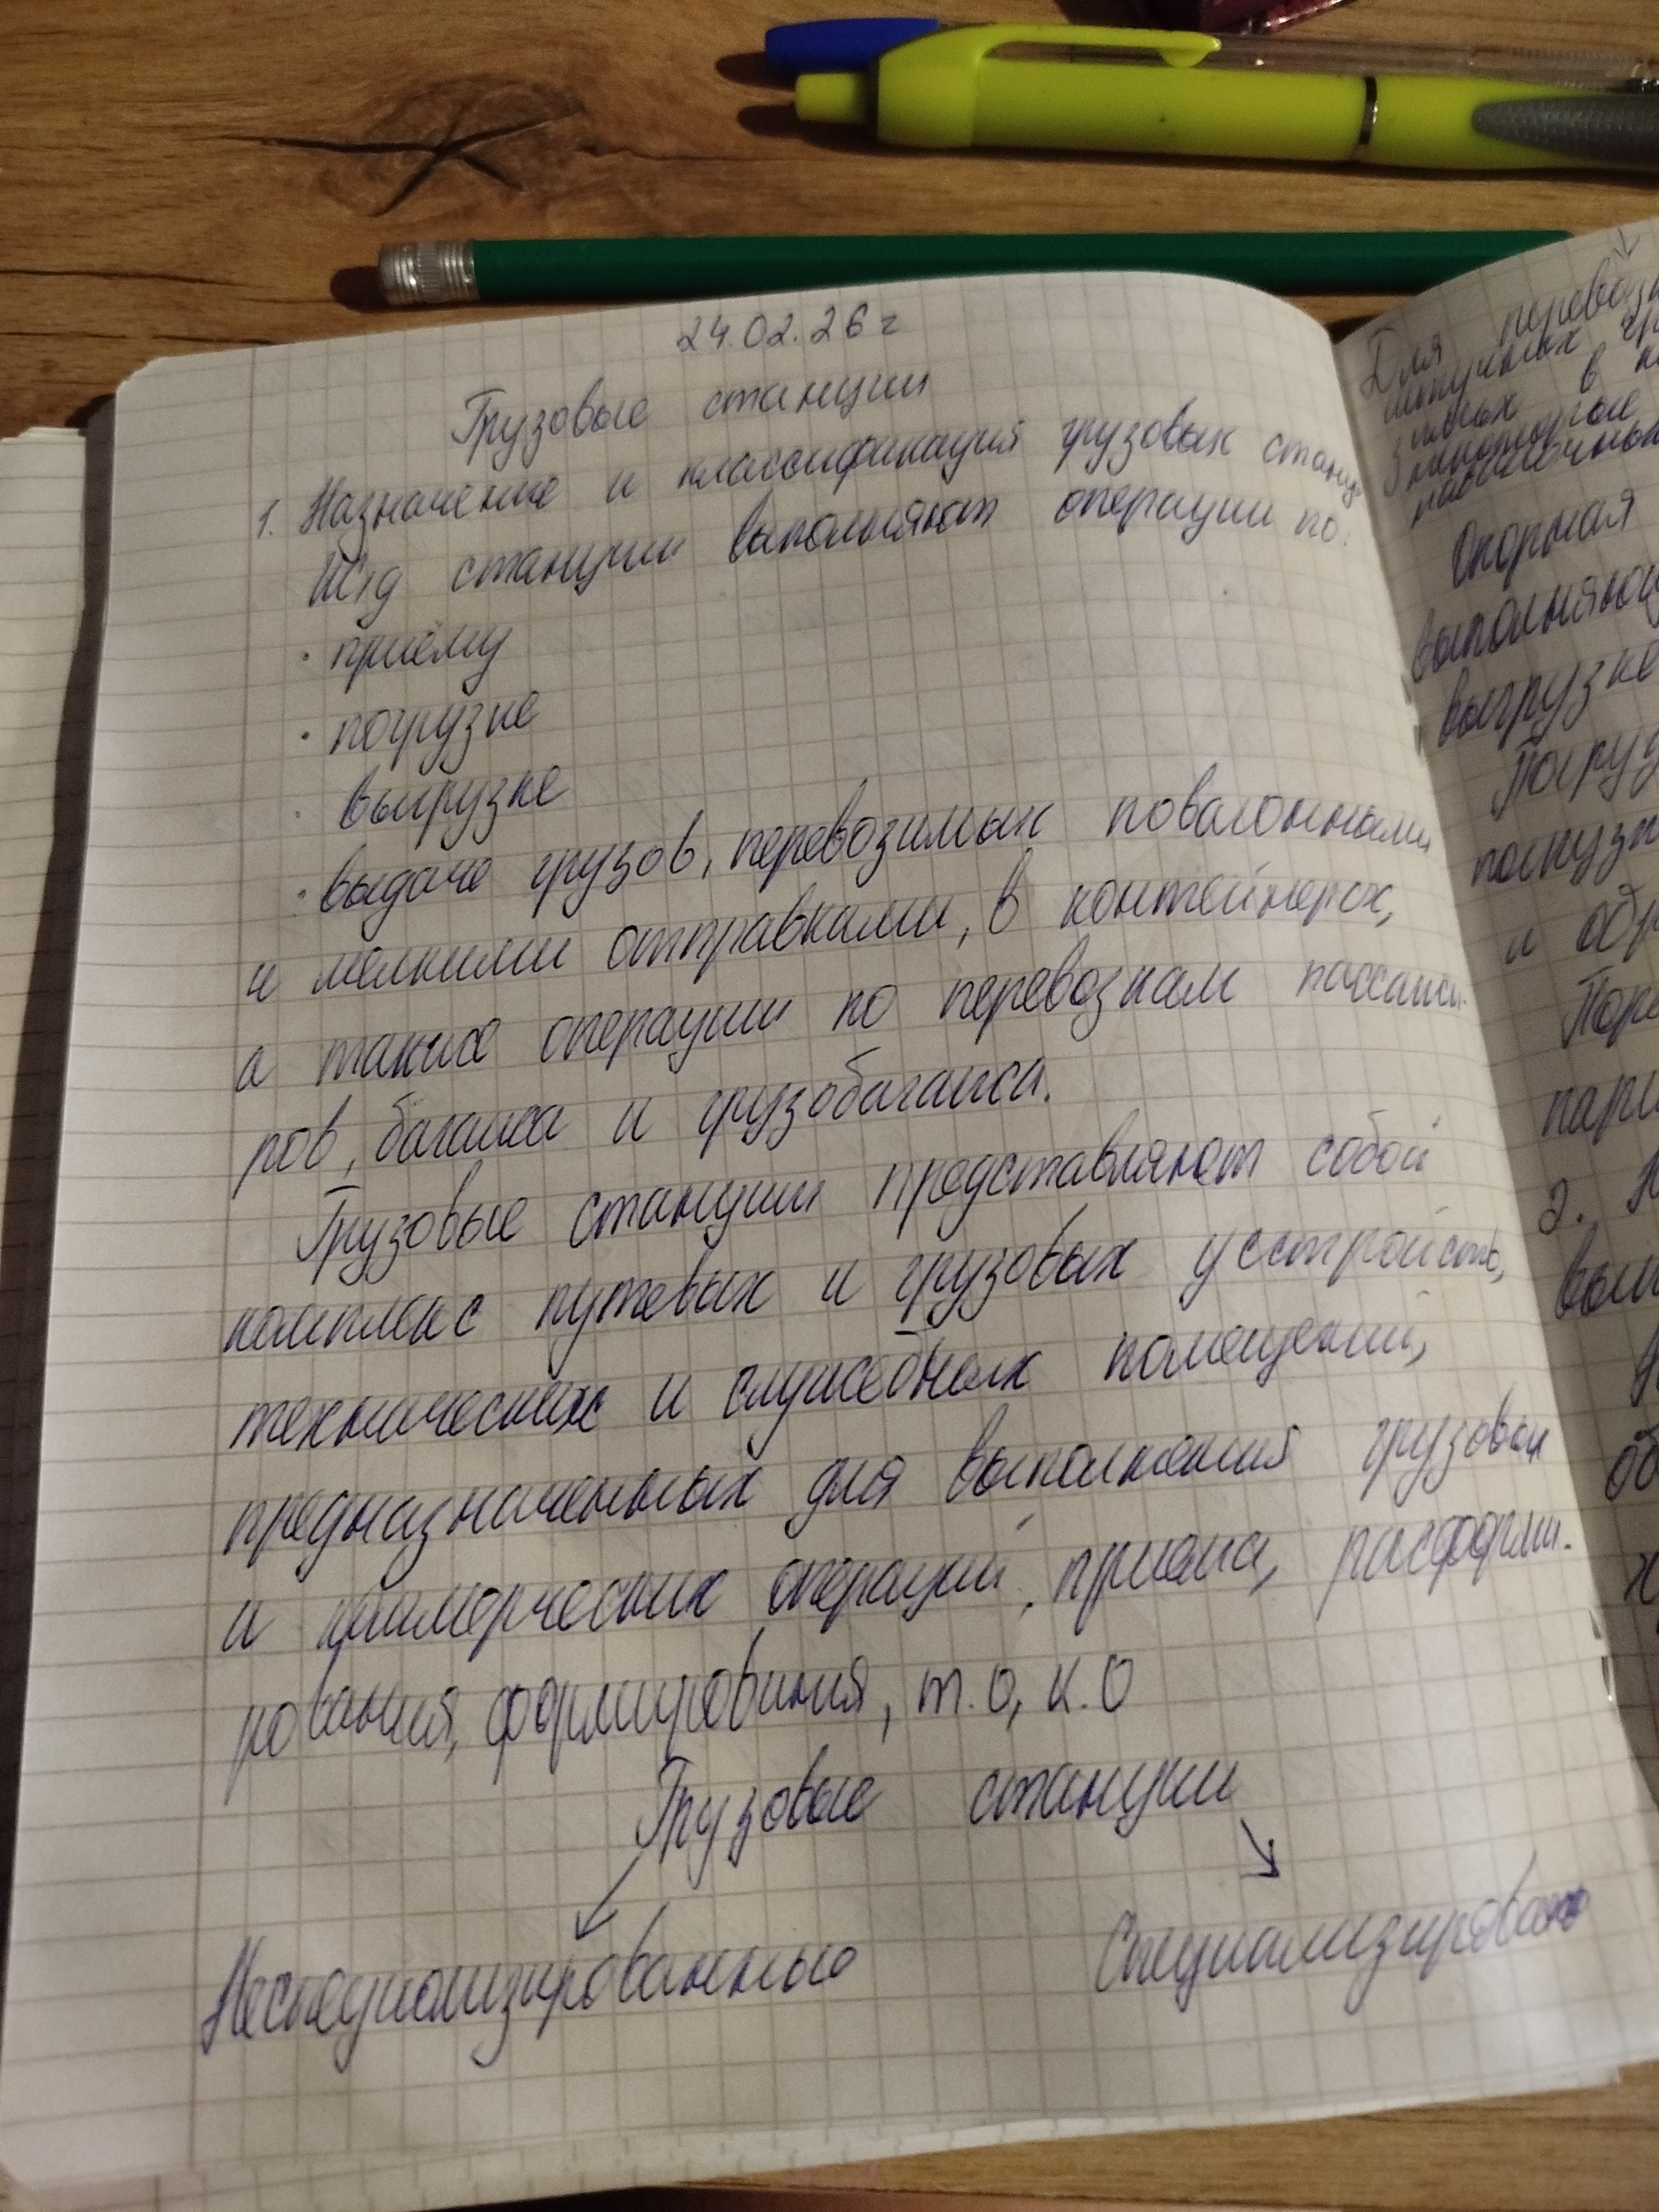 24.02.26 г
Грузовые станции
1. Назначение и классификация грузовых станци
Ж/д станции выполняют операции по:
· приёму
· погрузке
· выгрузке
· выдаче грузов, перевозимых повагонными
и мелкими отправками, в контейнерах,
а также операции по перевозкам пассажи-
ров, багажа и грузобагажа.
Грузовые станции представляют собой
комплекс путевых и грузовых устройств,
технических и служебных помещений,
предназначенных для выполнения грузовых
и коммерческих операций, приема, расформи-
рования, формирования, т.о, к.о
Грузовые станции
Неспециализированные
Специализирован
Для перевозк
в
Опорная
выполняющ
выгрузке
Погруз
погрузк
и обр
пари
2. Н
вып
об